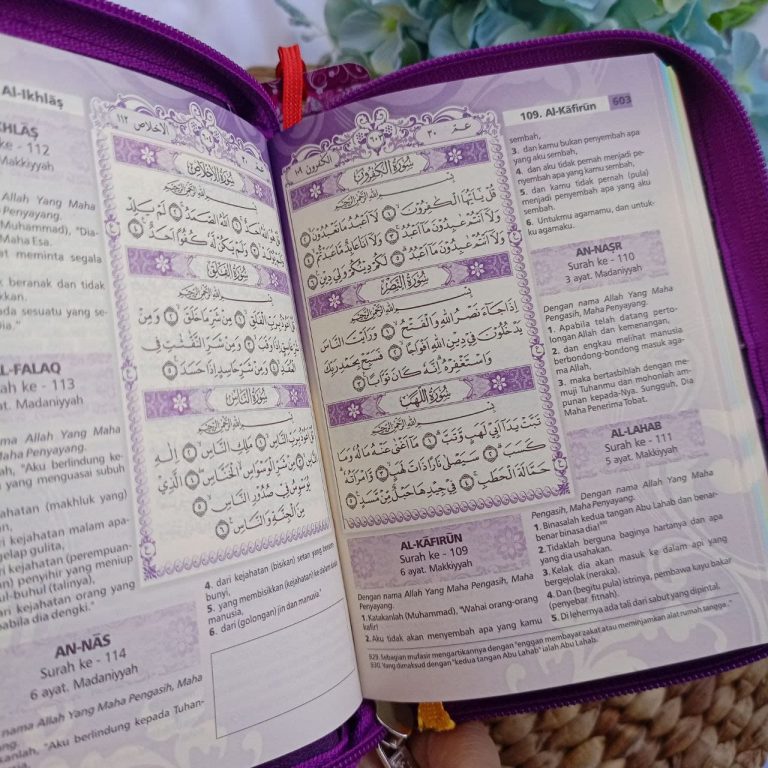 109. Al-Kāfirūn 603
عمّ ٣٠
٦٠٣
الكفرون ١٠٩
سُورَةُ الْكٰفِرُوْنَ
بِسْمِ اللّٰهِ الرَّحْمٰنِ الرَّحِيْمِ
قُلْ يٰٓاَيُّهَا الْكٰفِرُوْنَۙ ١ لَآ اَعْبُدُ مَا تَعْبُدُوْنَۙ ٢
وَلَآ اَنْتُمْ عٰبِدُوْنَ مَآ اَعْبُدُۚ ٣ وَلَآ اَنَا۠ عَابِدٌ مَّا عَبَدْتُّمْۙ ٤
وَلَآ اَنْتُمْ عٰبِدُوْنَ مَآ اَعْبُدُۗ ٥ لَكُمْ دِيْنُكُمْ وَلِيَ دِيْنِ ٦
سُورَةُ النَّصْرِ
بِسْمِ اللّٰهِ الرَّحْمٰنِ الرَّحِيْمِ
اِذَا جَاۤءَ نَصْرُ اللّٰهِ وَالْفَتْحُۙ ١ وَرَاَيْتَ النَّاسَ
يَدْخُلُوْنَ فِيْ دِيْنِ اللّٰهِ اَفْوَاجًاۙ ٢ فَسَبِّحْ بِحَمْدِ رَبِّكَ
وَاسْتَغْفِرْهُۗ اِنَّهٗ كَانَ تَوَّابًا ٣
سُورَةُ اللَّهَبِ
بِسْمِ اللّٰهِ الرَّحْمٰنِ الرَّحِيْمِ
تَبَّتْ يَدَآ اَبِيْ لَهَبٍ وَّتَبَّۗ ١ مَآ اَغْنٰى عَنْهُ مَالُهٗ وَمَا
كَسَبَۗ ٢ سَيَصْلٰى نَارًا ذَاتَ لَهَبٍۙ ٣ وَّامْرَاَتُهٗۗ
حَمَّالَةَ الْحَطَبِۚ ٤ فِيْ جِيْدِهَا حَبْلٌ مِّنْ مَّسَدٍ ٥
AL-KĀFIRŪN
Surah ke - 109
6 ayat. Makkiyyah
Dengan nama Allah Yang Maha Pengasih, Maha
Penyayang.
1. Katakanlah (Muhammad), "Wahai orang-orang
kafir!
2. Aku tidak akan menyembah apa yang kamu
sembah,
3. dan kamu bukan penyembah apa
yang aku sembah,
4. dan aku tidak pernah menjadi pe-
nyembah apa yang kamu sembah,
5. dan kamu tidak pernah (pula)
menjadi penyembah apa yang aku
sembah.
6. Untukmu agamamu, dan untuk-
ku agamaku.
AN-NAṢR
Surah ke - 110
3 ayat. Madaniyyah
Dengan nama Allah Yang Maha
Pengasih, Maha Penyayang.
1. Apabila telah datang perto-
longan Allah dan kemenangan,
2. dan engkau melihat manusia
berbondong-bondong masuk aga-
ma Allah,
3. maka bertasbihlah dengan me-
muji Tuhanmu dan mohonlah am-
punan kepada-Nya. Sungguh, Dia
Maha Penerima Tobat.
AL-LAHAB
Surah ke - 111
5 ayat. Makkiyyah
Dengan nama Allah Yang Maha
Pengasih, Maha Penyayang.
1. Binasalah kedua tangan Abu Lahab dan benar-
benar binasa dia!
2. Tidaklah berguna baginya hartanya dan apa
yang dia usahakan.
3. Kelak dia akan masuk ke dalam api yang
bergejolak (neraka).
4. Dan (begitu pula) istrinya, pembawa kayu bakar
(penyebar fitnah).
5. Di lehernya ada tali dari sabut yang dipintal.
929. Sebagian mufasir mengartikannya dengan "enggan membayar zakat atau meminjamkan alat rumah tangga."
930. Yang dimaksud dengan "kedua tangan Abu Lahab" ialah Abu Lahab.
Al-Ikhlāṣ
عمّ ٣٠
الاخلاص ١١٢
سُورَةُ الْاِخْلَاصِ
بِسْمِ اللّٰهِ الرَّحْمٰنِ الرَّحِيْمِ
قُلْ هُوَ اللّٰهُ اَحَدٌۚ ١ اَللّٰهُ الصَّمَدُۚ ٢ لَمْ يَلِدْ
وَلَمْ يُوْلَدْۙ ٣ وَلَمْ يَكُنْ لَّهٗ كُفُوًا اَحَدٌ ٤
سُورَةُ الْفَلَقِ
بِسْمِ اللّٰهِ الرَّحْمٰنِ الرَّحِيْمِ
قُلْ اَعُوْذُ بِرَبِّ الْفَلَقِۙ ١ مِنْ شَرِّ مَا خَلَقَۙ ٢ وَمِنْ
شَرِّ غَاسِقٍ اِذَا وَقَبَۙ ٣ وَمِنْ شَرِّ النَّفّٰثٰتِ فِى
الْعُقَدِۙ ٤ وَمِنْ شَرِّ حَاسِدٍ اِذَا حَسَدَ ٥
سُورَةُ النَّاسِ
بِسْمِ اللّٰهِ الرَّحْمٰنِ الرَّحِيْمِ
قُلْ اَعُوْذُ بِرَبِّ النَّاسِۙ ١ مَلِكِ النَّاسِۙ ٢ اِلٰهِ
النَّاسِۙ ٣ مِنْ شَرِّ الْوَسْوَاسِ ەۙ الْخَنَّاسِۖ ٤ الَّذِيْ
يُوَسْوِسُ فِيْ صُدُوْرِ النَّاسِۙ ٥
مِنَ الْجِنَّةِ وَالنَّاسِ ٦
KHLĀṢ
ke - 112
Makkiyyah
Allah Yang Maha
Penyayang.
(Muhammad), "Dia-
Maha Esa.
meminta segala
beranak dan tidak
kkan.
ada sesuatu yang se-
ia."
L-FALAQ
rah ke - 113
at. Madaniyyah
nama Allah Yang Maha
Maha Penyayang.
lah, "Aku berlindung ke-
yang menguasai subuh
kejahatan (makhluk yang)
kejahatan malam apa-
gelap gulita,
kejahatan (perempuan-
n) penyihir yang meniup
ul-buhul (talinya),
kejahatan orang yang
pabila dia dengki."
AN-NĀS
Surah ke - 114
6 ayat. Madaniyyah
nama Allah Yang Maha Pengasih, Maha
yang.
kanlah, "Aku berlindung kepada Tuhan-
4. dari kejahatan (bisikan) setan yang bersem-
bunyi,
5. yang membisikkan (kejahatan) ke dalam dada
manusia,
6. dari (golongan) jin dan manusia."